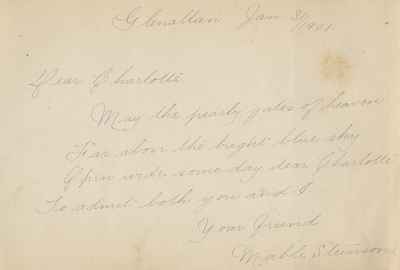 Glenallan Jan 31/1901
Dear Charlotte
May the pearly gates of heaven
Far above the bright blue sky
Open wide some day dear Charlotte
To admit both you and I
Your Friend
Mable